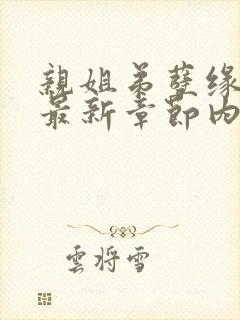 親姐弟孽缘
最新章節内
雲将雪